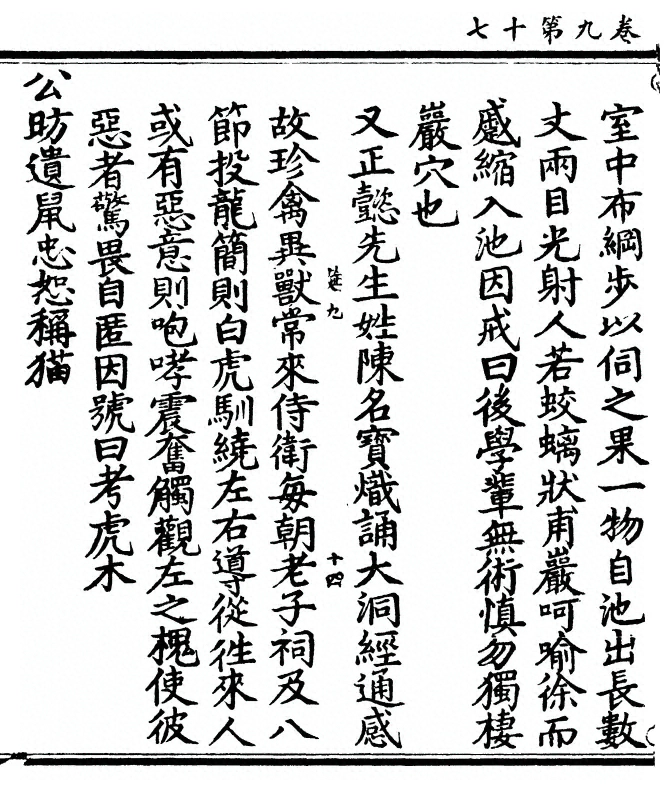 卷九第十七
室中布綱步以伺之果一物自池出長數
丈兩目光射人若蛟螭狀甫嚴呵喻徐而
蹙縮入池因戒曰後學輩無術慎勿獨棲
巖穴也
又正懿先生姓陳名寶熾誦大洞經通感
卷九
十四
故珍禽異獸常來侍衛每朝老子祠及八
節投龍簡則白虎馴繞左右導從往來人
或有惡意則咆哮震奮觸觀左之槐使彼
惡者驚畏自匿因號曰考虎木
公昉遺鼠忠恕稱猫